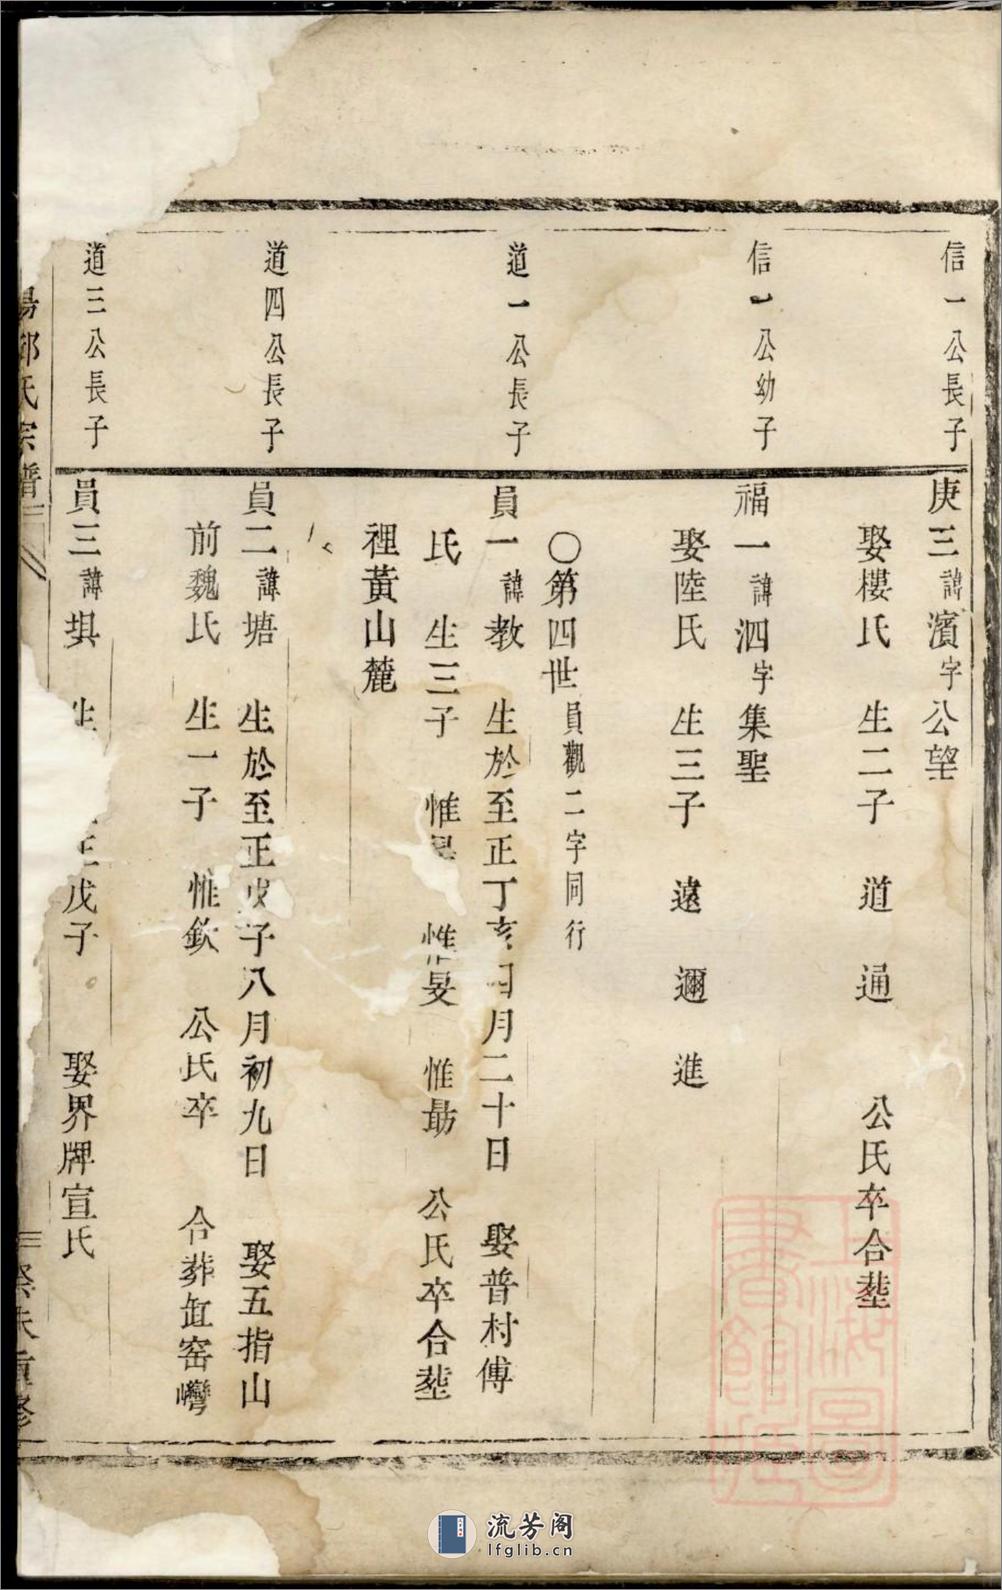 信一公長子
庚三諱濱字公望
娶樓氏 生二子 道 通 公氏卒合塟
信一公幼子
福一諱泗字集聖
娶陸氏 生三子 遠 邇 進
〇第四世員觀二字同行
道一公長子
員一諱教 生於至正丁亥 月二十日 娶普村傅
氏 生三子 惟 惟旻 惟勗 公氏卒合塟
裡黃山麓
道四公長子
員二諱塘 生於至正戊子八月初九日 娶五指山
前魏氏 生一子 惟欽 公氏卒 合葬缸窑灣
道三公長子
員三諱埧 生 正戊子 娶界牌宣氏
氏宗譜
重修
上海圖書館藏
流芳阁
lfglib.cn